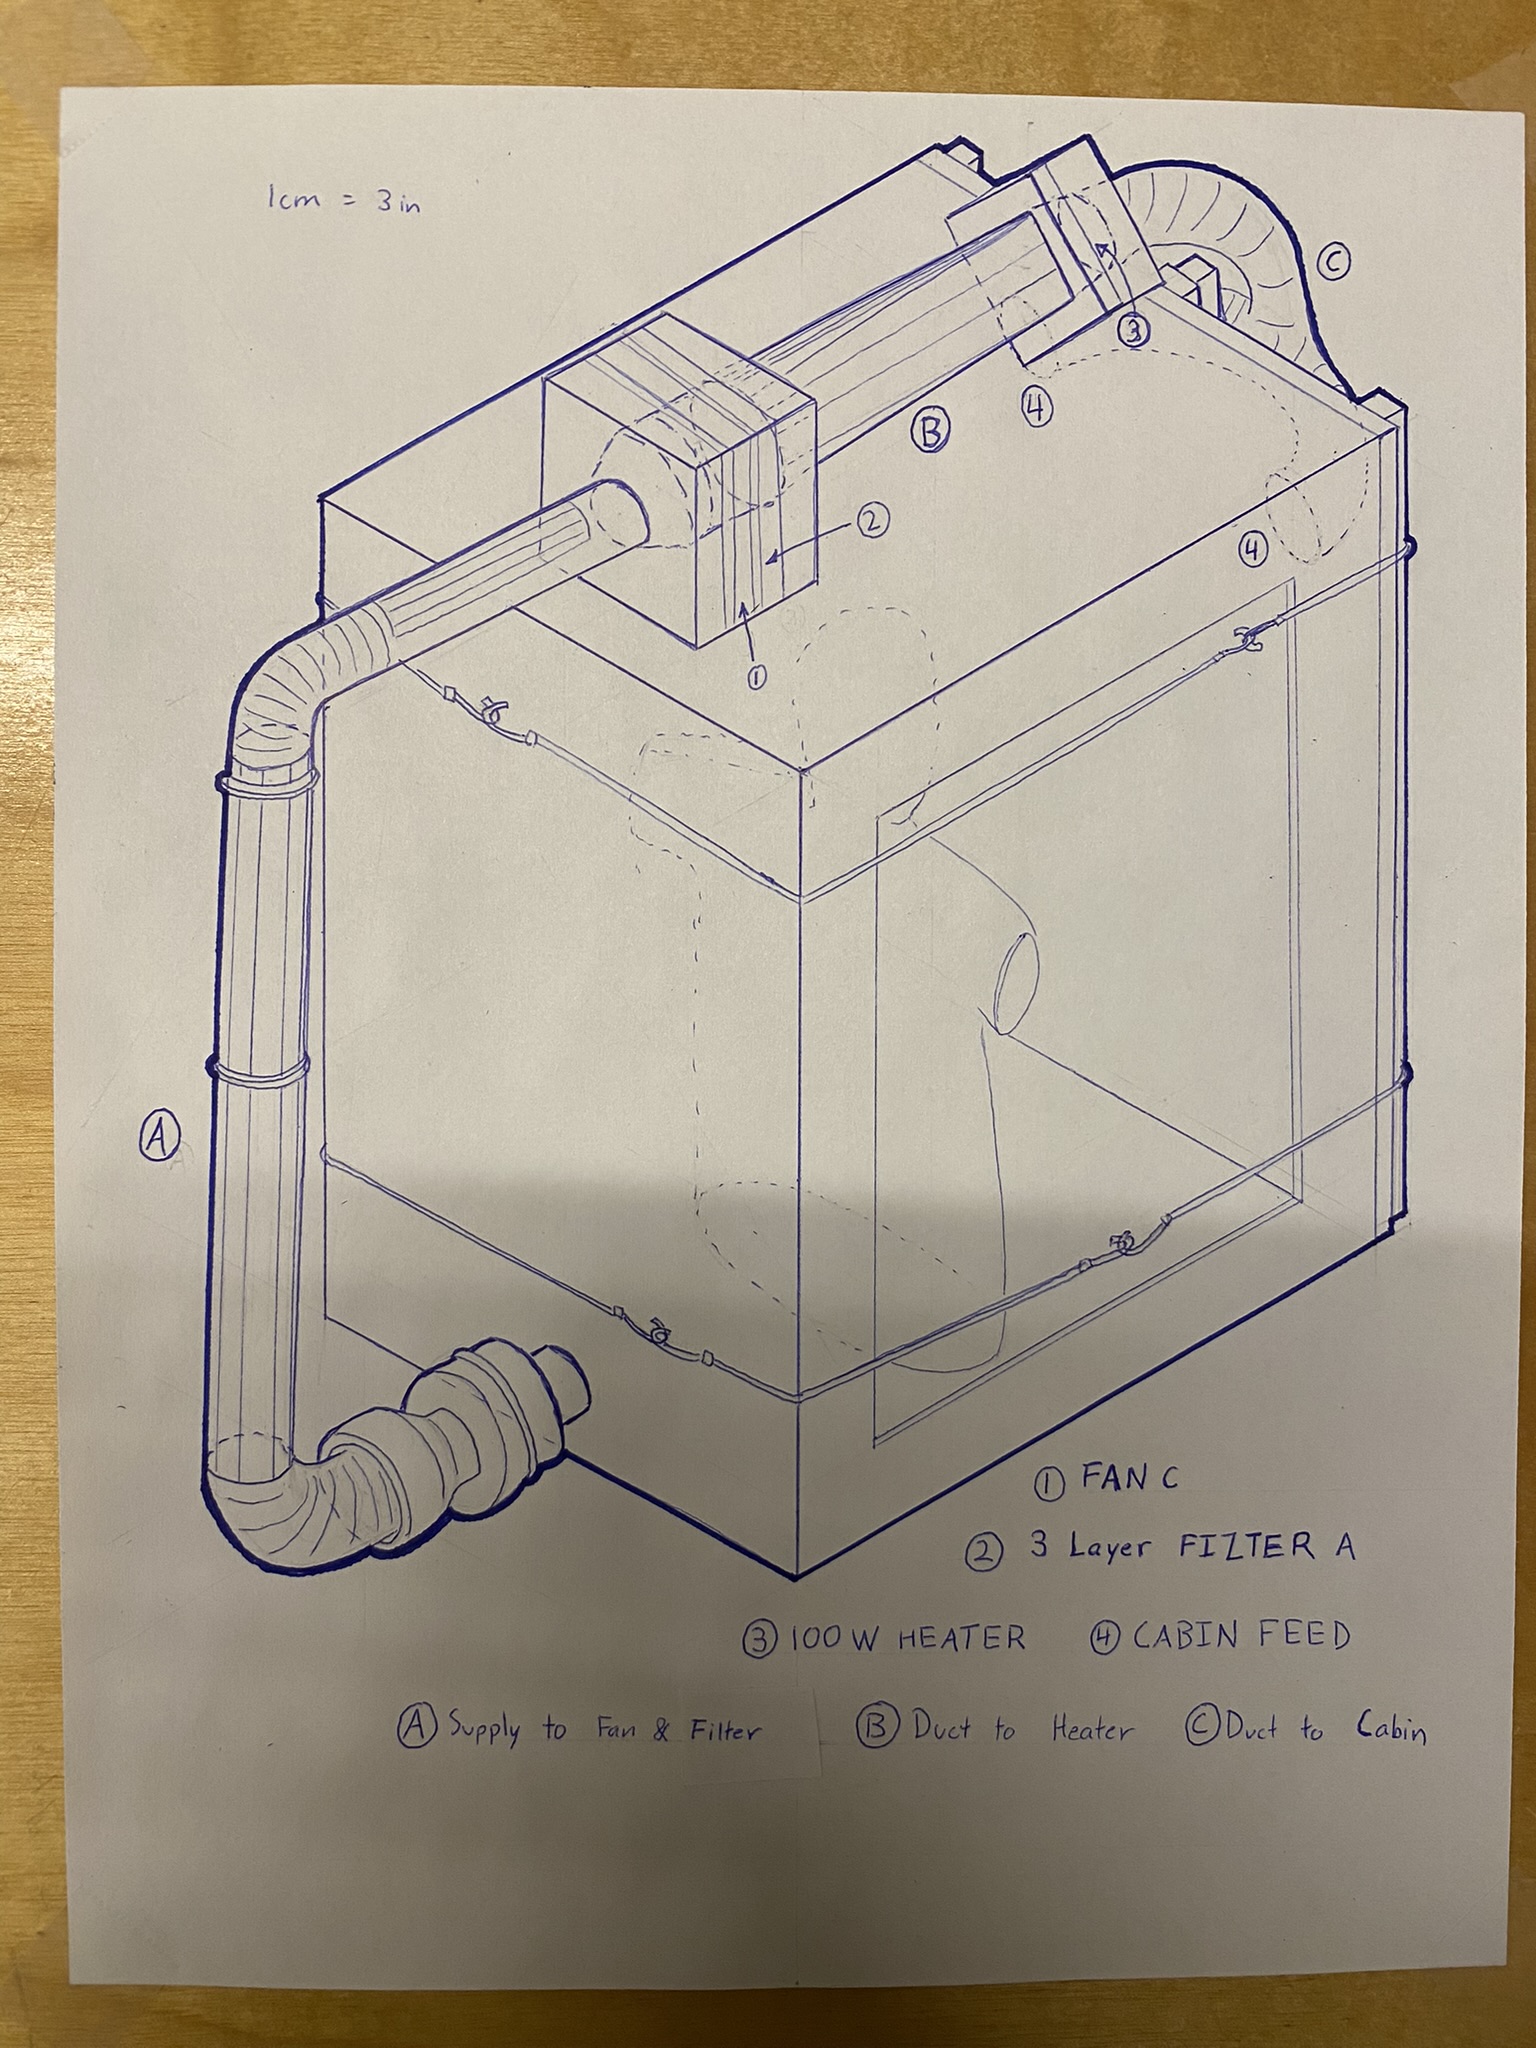 1cm = 3in
C
3
4
B
2
4
1
A
① FAN C
② 3 Layer FILTER A
③ 100W HEATER ④ CABIN FEED
Ⓐ Supply to Fan & Filter Ⓑ Duct to Heater Ⓒ Duct to Cabin